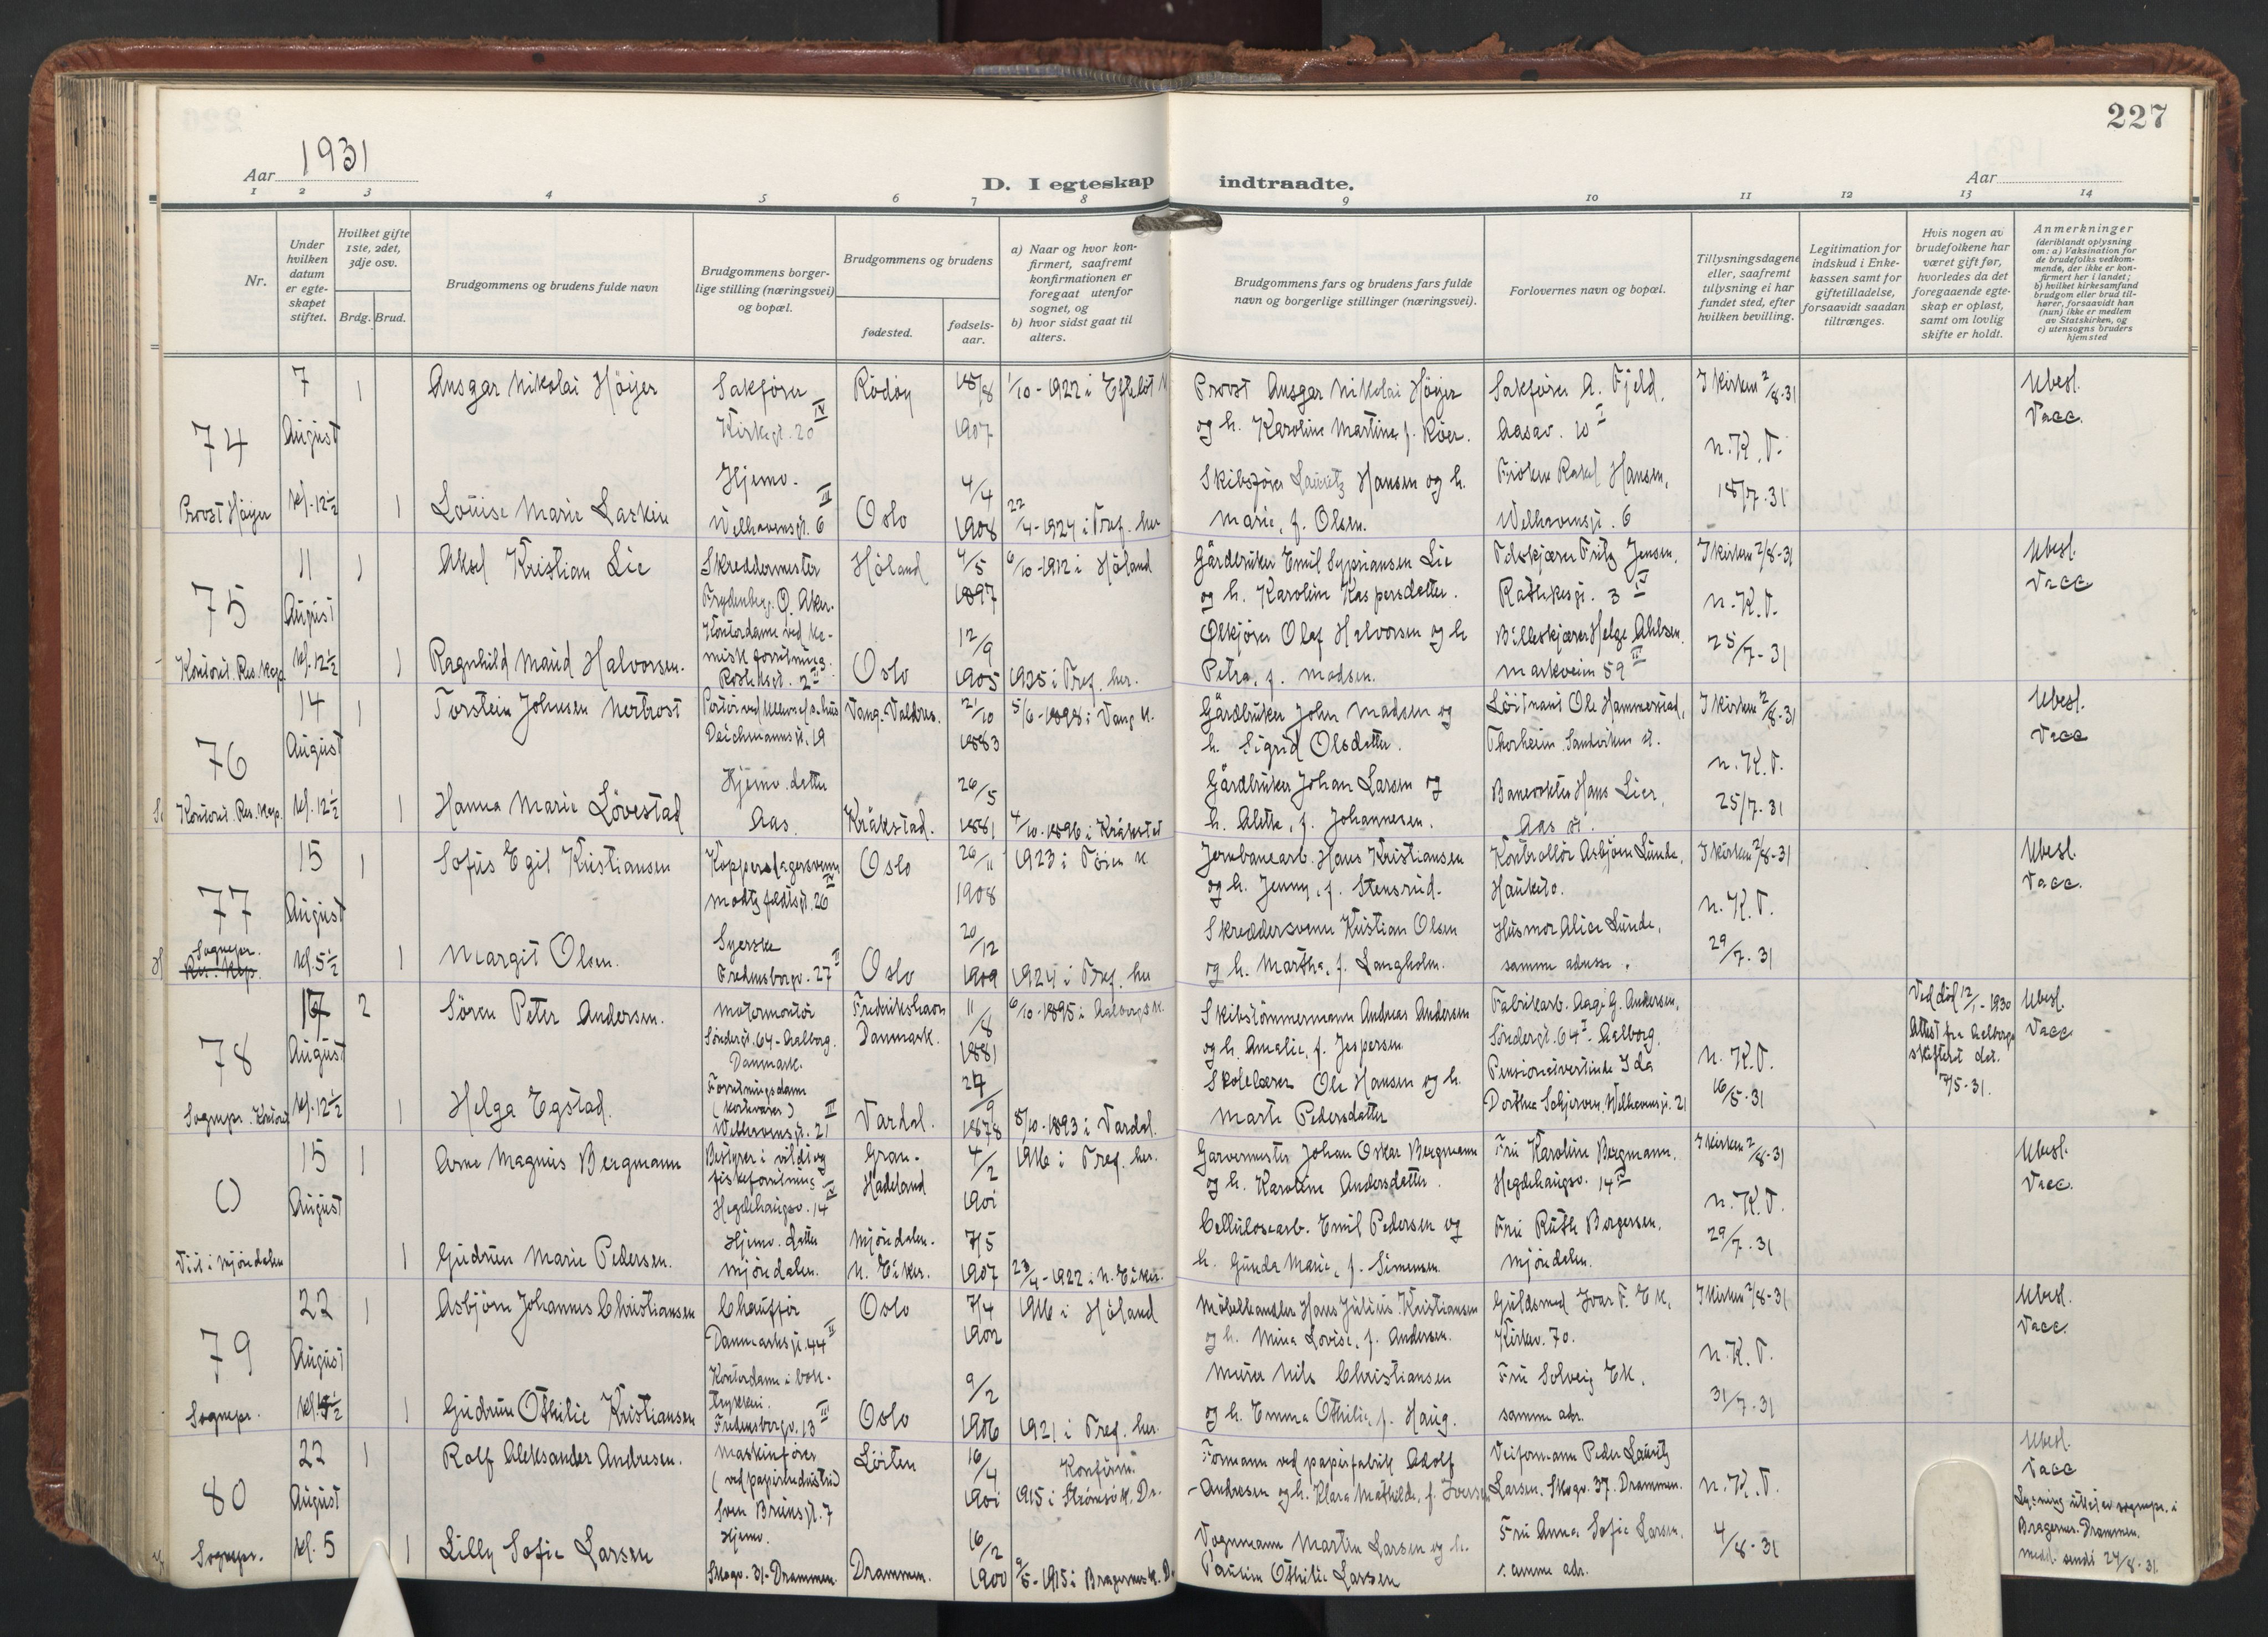 227
Aar 1931
D. I egteskap indtraadte.
Aar
1 2 3 4 5 6 7 8 9 10 11 12 13 14
Nr.
Under hvilken datum er egteskapet stiftet.
Hvilket gifte 1ste, 2det, 3dje osv.
Brdg. Brud.
Brudgommens og brudens fulde navn
Brudgommens borgerlige stilling (næringsvei) og bopæl.
Brudgommens og brudens
fødested.
fødselsaar.
a) Naar og hvor konfirmert, saafremt konfirmationen er foregaat utenfor sognet, og
b) hvor sidst gaat til alters.
Brudgommens fars og brudens fars fulde navn og borgerlige stillinger (næringsvei).
Forlovernes navn og bopæl.
Tillysningsdagene eller, saafremt tillysning ei har fundet sted, efter hvilken bevilling.
Legitimation for indskud i Enkekassen samt for giftetilladelse, forsaavidt saadan tiltrænges.
Hvis nogen av brudefolkene har været gift før, hvorledes da det foregaaende egteskap er opløst, samt om lovlig skifte er holdt.
Anmerkninger
(deriblandt oplysning om: a) Vaksination for de brudefolks vedkommende, der ikke er konfirmert her i landet; b) hvilket kirkesamfund brudgom eller brud tilhører, forsaavidt han (hun) ikke er medlem av Statskirken, og c) utensogns bruders hjemsted
74 Provst Høyer
7 August kl. 12½
1 Ansgar Nikolai Höyer
Sakfører Kirkegt. 20 IV
Rödöy
18/8 1907
1/10-1922 i Efteløt K
Provst Ansgar Nikolai Höyer
og h. Karoline Martine f. Röer.
Sakfører A. Fjeld,
Aasav. 10 I
I kirken 2/8-31
n.K.T.
18/7-31
Ubesl.
Vacc.
1 Louise Marie Larkin
Hjemv.
Welhavensgt. 6 III
Oslo
4/4 1908
22/4-1924 i Tref. her
Skibsfører Lauritz Hansen og h.
Marie, f. Olsen.
Frøken Rakel Hansen,
Welhavensgt. 6
75 Kontoret. Res. kap
11 August kl. 12½
1 Aksel Kristian Lie
Skreddermester
Frydenberg. Ø. Aker.
Höland
4/5 1897
6/10-1912 i Höland
Gårdbruker Emil Sypriansen Lie
og h. Karoline Kaspersdatter.
Tilskjærer Fritz Jensen,
Rathkesgt. 3 IV
I kirken 2/8-31
n.K.T.
25/7-31
Ubesl.
Vacc
1 Ragnhild Maud Halvorsen.
Kontordame ved kemisk forretning.
Oslo
12/9 1905
1925 i Tref. her.
Ølkjører Olaf Halvorsen og h
Petra, f. Madsen.
Billeskjærer Helge Ahlsen.
Markveien 59 III
76 Kontoret. Res. kap.
14 August kl. 12½
1 Torstein Johnsen Nertrost
Deichmannsgt. 19
Vang. Valdres.
21/10 1883
5/6-1898 i Vang K.
Gårdbruker John Madsen og
h. Sigrid Olsdatter.
Løitnant Ole Hammerstad,
Thorheim. Sandviken st.
I kirken 2/8-31
n.K.T.
25/7-31
Ubesl.
Vacc
1 Hanna Marie Lövestad
Hjemv. datter
Aas.
Kråkstad.
26/5 1881
4/10-1896 i Kråkstad
Gårdbruker Johan Larsen og
h. Alette, f. Johannesen.
Banevokter Hans Lier,
Aas st.
77 Sognepr.
Res. Kap.
15 August kl. 5½
1 Sofus Egil Kristiansen
Koppersslagersvenn
Motzfeldtsgt. 26 IV
Oslo
26/11 1908
1923 i Tøien K
Jernbanearb. Hans Kristiansen
og h. Jenny, f. Stensrud.
Kontrollör Asbjörn Lunde,
Hauketo.
I kirken 2/8-31
n.K.T.
29/7-31
Ubesl.
Vacc.
1 Margit Olsen.
Syerske
Fredensborgv. 27 II
Oslo
20/12 1909
1924 i Tref. her
Skreddersvenn Kristian Olsen
og h. Martha, f. Langholm.
Husmor Alice Lunde,
samme adresse.
78 Sognepr. Kontoret
17 August kl. 12½
2 Sören Peter Andersen.
Motormontör
Söndergt. 64 - Aalborg.
Danmark.
Fredrikshavn
Danmark.
11/8 1881
6/10-1895 i Aalborgs K.
Skibstömmermann Andreas Andersen
og h. Amalie, f. Jespersen
Fabrikarb. Aage G. Andersen,
Söndergt. 64 I. Aalborg.
n.K.T.
16/5-31
Ved död 12/1-1930
Attest fra Aalborg
skifteret dat.
7/5-31.
Ubesl.
Vacc
1 Helga Egstad.
Forretningsdame
(kortevarer)
Welhavensgt. 21 III
Vardal.
27/9 1878
8/10-1893 i Vardal.
Skolelærer Ole Hansen og h.
Marte Pedersdatter
Pensionatvertinde Ida
Dorthea Schjerven. Welhavensgt. 21
0 Viet i Mjöndalen
15 August
1 Arne Magnus Bergmann
Bestyrer i vildt og
fiskeforretning
Hegdehaugsv. 14 IV
Gran.
Hadeland
4/2 1901
1916 i Tref. her.
Garvermester Johan Oskar Bergmann
og h. Karoline Andersdatter.
Fru Karoline Bergmann.
Hegdehaugsv. 14 IV
I kirken 2/8-31
n.K.T.
29/7-31
Ubesl.
Vacc.
1 Gudrun Marie Pedersen.
Hjemv. datter
Mjöndalen.
Mjöndalen.
N. Eiker.
7/5 1907
23/4-1922 i N. Eiker.
Cellulosearb. Emil Pedersen og
h. Gunda Marie, f. Simensen.
Fru Ruth Borgersen.
Mjöndalen.
79 Sognepr.
22 August
1 Asbjörn Johannes Christiansen
Chauffør
Danmarksgt. 44 II
Oslo
7/4 1902
1916 i Höland
Möbelhandler Hans Julius Kristiansen
og h. Mina Lovise, f. Andersen.
Guldsmed Ivar F. Ek,
Kirkev. 70.
I kirken 2/8-31
n.K.T.
31/7-31
Ubesl.
Vacc.
1 Gudrun Othilie Kristiansen
Kontordame i boktrykkeri.
Fredensborgv. 13 III
Oslo
9/2 1906
1921 i Tref. her.
Murer Nils Christiansen
og h. Emma Othilie, f. Haug.
Fru Solveig Ek,
samme adr.
80 Sognepr.
22 August kl. 5
1 Rolf Aleksander Andresen.
Maskinfører
(ved papirindustri)
Sven Bruns gt. 7
Löiten
16/4 1901
Konfirm.
1915 i Strömsö K. Dr.
Formann ved papirfabrik Adolf
Andresen og h. Klara Mathilde, f. Iversen
Veiformann Peder Lauritz
Larsen. Skogv. 37. Drammen.
n.K.T.
4/8-31
Ubesl.
Vacc
Lysning utstet av sognepr. i
Bragernes. Drammen.
medd. sendt 24/8-31.
1 Lilly Sofie Larsen
Hjemv.
Skogv. 31-Drammen.
Drammen.
16/2 1900
Vognmann Martin Larsen og h.
Pauline Othilie Larsen
Fru Anna Sofie Larsen,
samme adr.